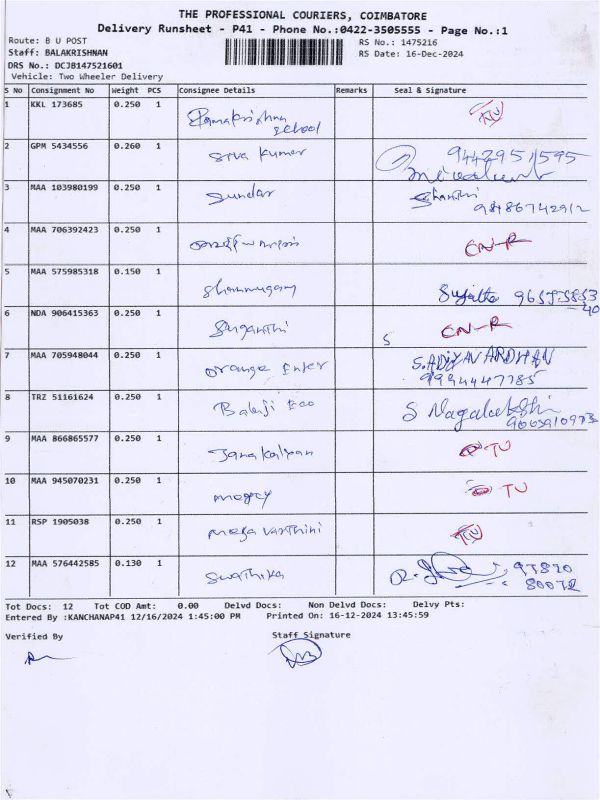 THE PROFESSIONAL COURIERS, COIMBATORE
Delivery Runsheet - P41 - Phone No.:0422-3505555 - Page No.:1
Route: B U POST
RS No.: 1475216
Staff: BALAKRISHNAN
RS Date: 16-Dec-2024
DRS No.: DCJB147521601
Vehicle: Two Wheeler Delivery
S No Consignment No Weight PCS Consignee Details Remarks Seal & Signature
1 KKL 173685 0.250 1 Ramakrishna school TU
2 GPM 5434556 0.260 1 Siva kumar 9442951595
3 MAA 103980199 0.250 1 Sundar Shanthi
4 MAA 706392423 0.250 1 CN-R
5 MAA 575985318 0.150 1 Shanmugam Sujatha
6 NDA 906415363 0.250 1 Suganthi S CN-R
7 MAA 705948044 0.250 1 orange Enter S.ADIYAVARDHAN 9994447785
8 TRZ 51161624 0.250 1 Balaji Eco S Nagalakshi
9 MAA 866865577 0.250 1 Janakalyan TU
10 MAA 945070231 0.250 1 TU
11 RSP 1905038 0.250 1 mega varthini TU
12 MAA 576442585 0.130 1 Swathika 97870 80072
Tot Docs: 12 Tot COD Amt: 0.00 Delvd Docs: Non Delvd Docs: Delvy Pts:
Entered By :KANCHANAP41 12/16/2024 1:45:00 PM Printed On: 16-12-2024 13:45:59
Verified By Staff Signature